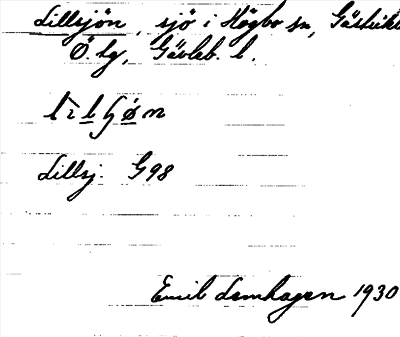 Lillsjön, sjö i Högbo sn, Gästrikl
Ö. tg, Gävleb. l.
Lillsj. G98
Emil Lemhagen 1930